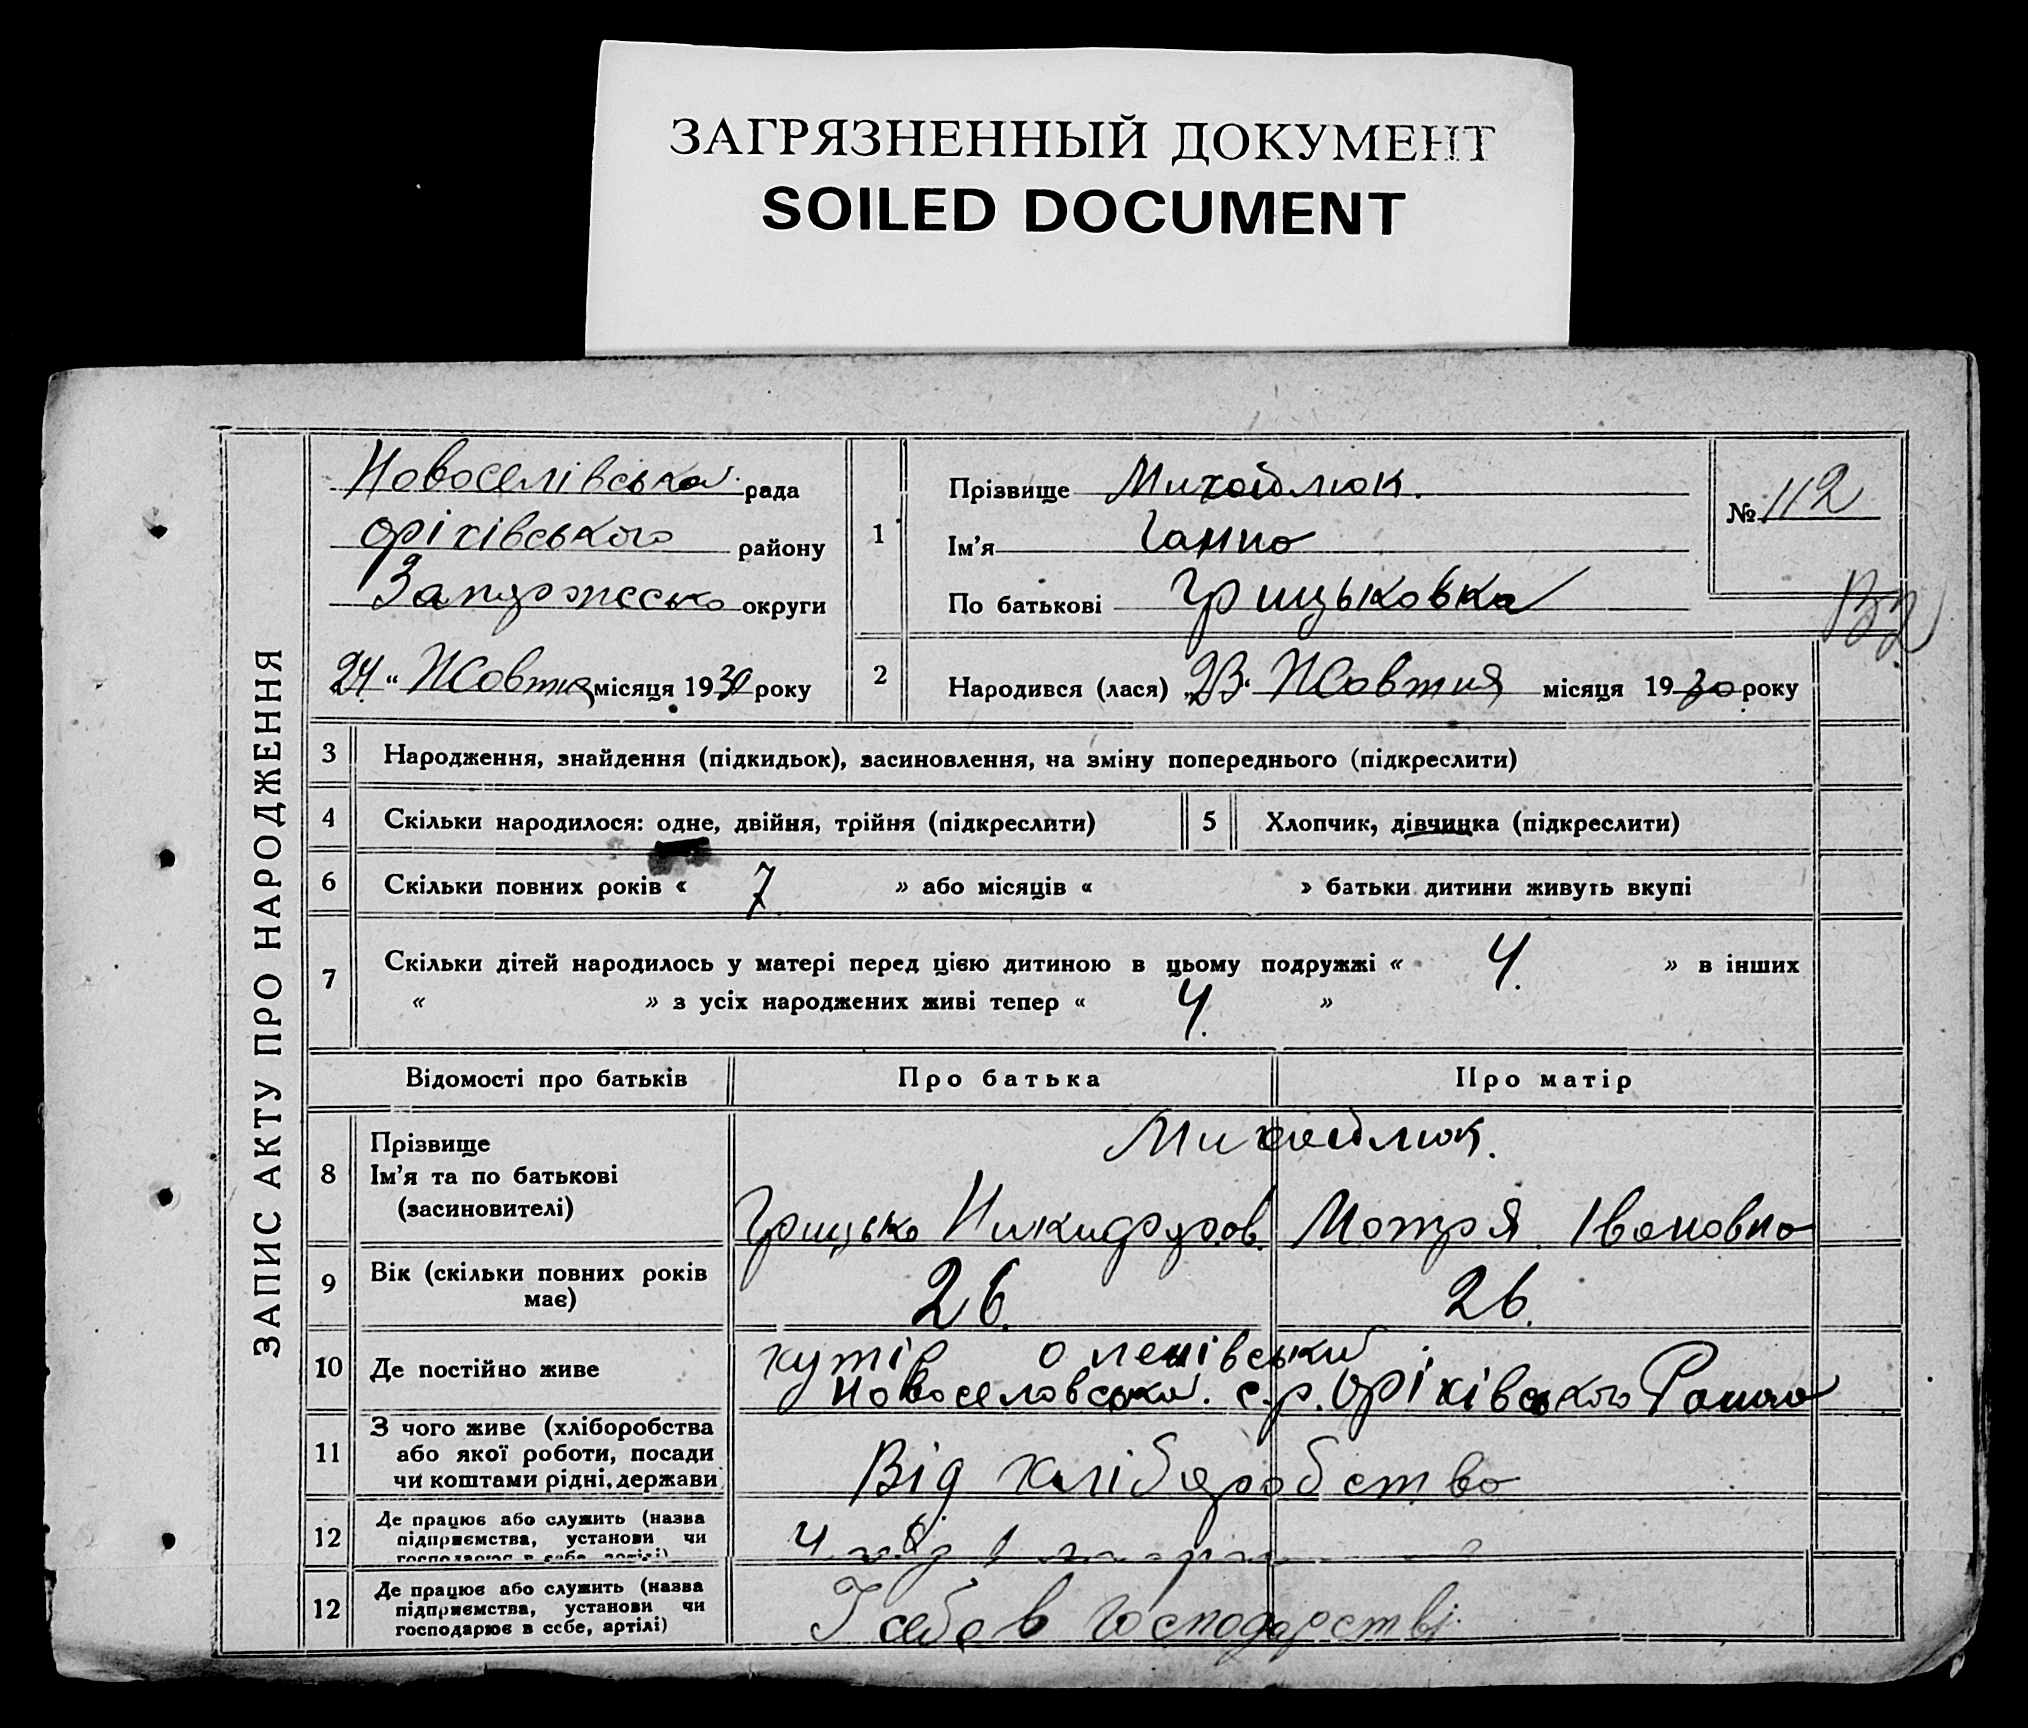 ЗАГРЯЗНЕННЫЙ ДОКУМЕНТ
SOILED DOCUMENT
ЗАПИС АКТУ ПРО НАРОДЖЕННЯ
Новоселівська рада
Оріхівського району
округи
24 " Жовтня місяця 1930 року
1 Прізвище Михайлюк.
Ім'я Ганна
По батькові Грицьковна
№ 112
2 Народився (лася) „23" Жовтня місяця 1930 року
3 Народження, знайдення (підкидьок), засиновлення, на зміну попереднього (підкреслити)
4 Скільки народилося: одне, двійня, трійня (підкреслити) 5 Хлопчик, дівчинка (підкреслити)
6 Скільки повних років « 7 » або місяців « » батьки дитини живуть вкупі
7 Скільки дітей народилось у матері перед цією дитиною в цьому подружжі « 4. » в інших
« » з усіх народжених живі тепер « 4. »
Відомості про батьків Про батька Про матір
8 Прізвище
Ім'я та по батькові
(засиновителі)
Михайлюк.
Грицько Никифоров. Мотря Івановна
9 Вік (скільки повних років
має)
26. 26.
10 Де постійно живе
хутір Оленівський
Новоселовська. с.р. Оріхівського
11 З чого живе (хліборобства
або якої роботи, посади
чи коштами рідні, держави
Від хліборобства
12 Де працює або служить (назва
підприємства, установи чи
господарює в себе, артілі)
12 Де працює або служить (назва
підприємства, установи чи
господарює в себе, артілі)
У себе в господарстві